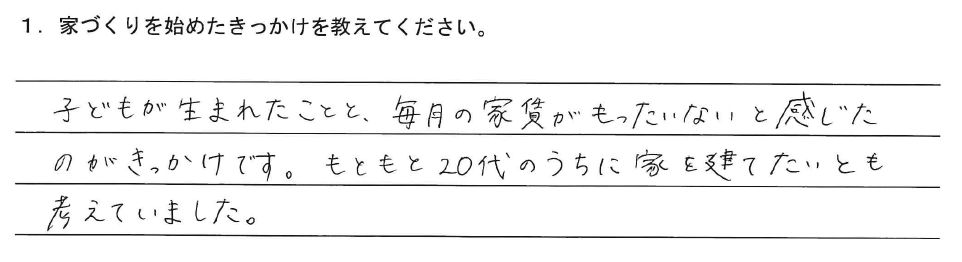 1．家づくりを始めたきっかけを教えてください。
子どもが生まれたことと、毎月の家賃がもったいないと感じた
のがきっかけです。もともと20代のうちに家を建てたいとも
考えていました。